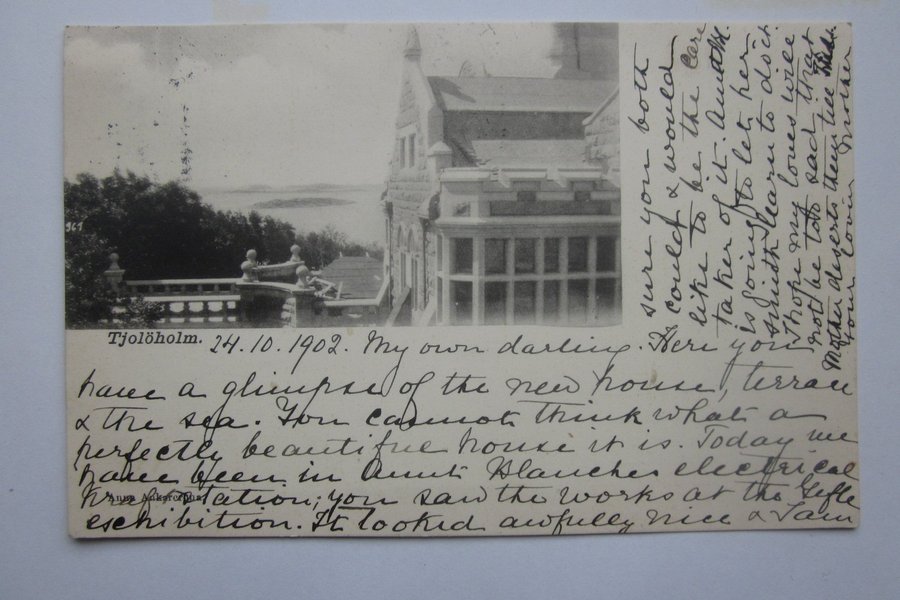 961
Tjolöholm.
24.10.1902. My own darling. Here you
have a glimpse of the new house, terrace
& the sea. You cannot think what a
perfectly beautiful house it is. Today we
have been in Aunt Blanches electrical
Anna Ackerergha
you saw the works at the Gefle
exchibition. It looked awfully nice & I am
sure you both
could & would
like to be the care
taker of it. Aunt M.
is going to let her
smith learn to do it
I hop my loves will
not be too sad that
Mother deserts them till
Your lovin Mother